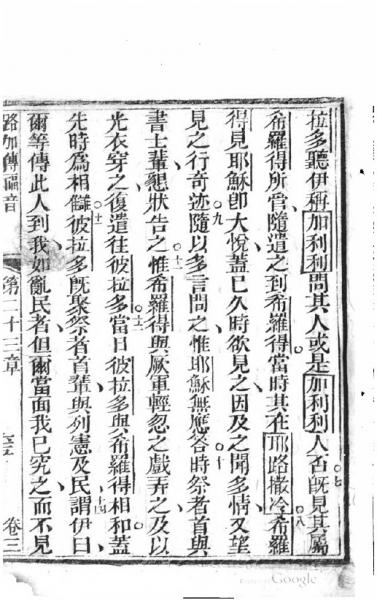 拉多聽伊稱加利利問其人或是加利利人否既見其屬
希羅得所當隨遣之到希羅得當時其在耶路撒冷希羅
得見耶穌卽大悅蓋已久時欲見之因及之聞多情又望
見之行奇迹隨以多言問之惟耶穌無應答時祭者首與
書士輩懇狀告之惟希羅得與厥軍輕忽之戲弄之及以
光衣穿之復遣往彼拉多當日彼拉多與希羅得相和蓋
先時為相讎彼拉多既聚祭者首輩與列憲及民謂伊曰
爾等傳此人到我如亂民者但爾當面我已究之而不見
路加傳福音 第二十三章 卷三
七
八
九
十
十一
十二
十三
十四
Google